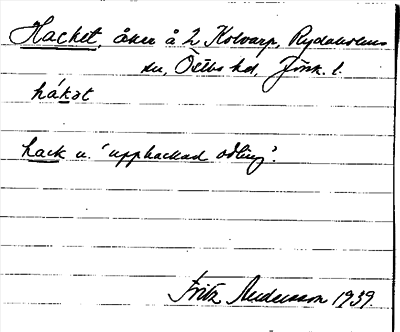 Hacket, åker å L. Kolvarp, Rydaholms
sn, Östbo hd, Jönk. l.
hákət
hack n. 'upphackad odling'.
Fritz Andersson 1939.